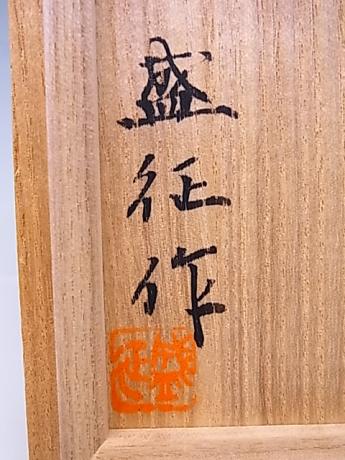 盛征作